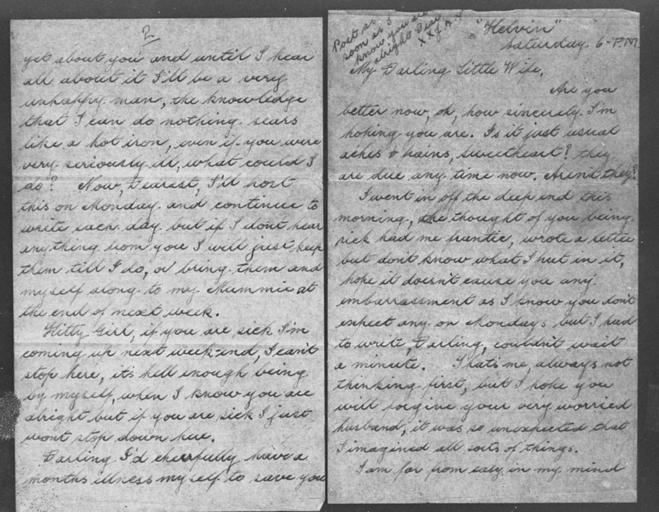 Post as
soon as I
know you are
alright Dear
"Kelvin"
Saturday. 6-P.M.
My Darling Little Wife,
Are you
better now, oh, how sincerely I'm
hoping you are. Is it just usual
aches & pains, sweetheart? they
are due any time now. Aren't they?
I went in off the deep end this
morning, the thought of you being
sick had me frantic, wrote a letter
but don't know what I put in it,
hope it doesn't cause you any
embarrassment as I know you don't
expect any on Mondays but I had
to write, Darling, couldn't wait
a minute. That's me, always not
thinking first, but I hope you
will forgive your very worried
husband, it was so unexpected that
I imagined all sorts of things.
I am far from easy in my mind
2
yet about you and until I hear
all about it I'll be a very
unhappy man, the knowledge
that I can do nothing sears
like a hot iron, even if you were
very seriously ill, what could I
do? Now, Dearest, I'll post
this on Monday and continue to
write each day but if I don't hear
anything from you I will just keep
them till I do, or bring them and
myself along to my Mummie at
the end of next week.
Kitty Girl, if you are sick I'm
coming up next week-end, I can't
stop here, it's hell enough being
by myself, when I know you are
alright but if you are sick I just
wont stop down here.
Darling I'd cheerfully have a
months illness myself to save you